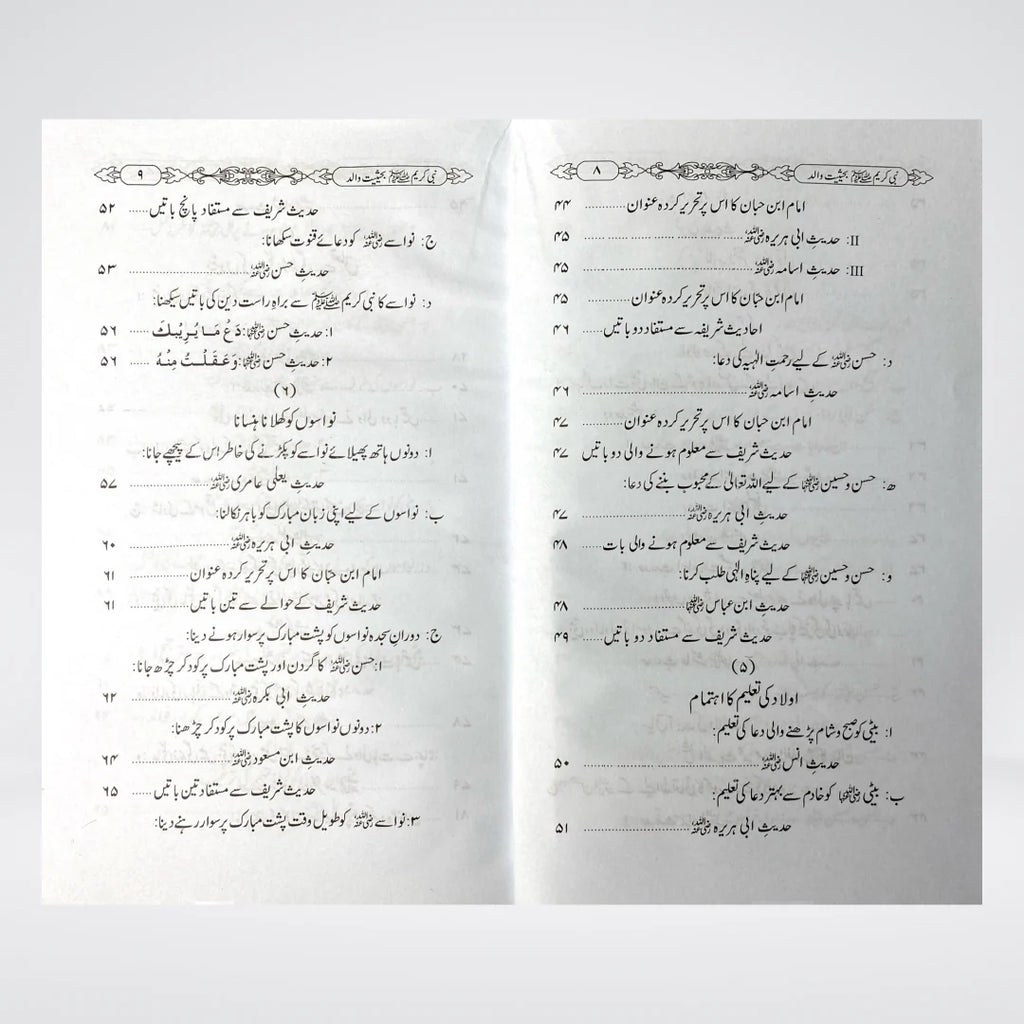 نبی کریم ﷺ بحیثیت والد ۸
امام ابن حبان کا اس پر تحریر کردہ عنوان ............ ۴۴
II: حدیثِ ابی ہریرہ رضی اللہ عنہ ............ ۴۵
III: حدیثِ اسامہ رضی اللہ عنہ ............ ۴۵
امام ابن حبان کا اس پر تحریر کردہ عنوان ............ ۴۵
احادیث شریفہ سے مستفاد دو باتیں ............ ۴۶
د: حسن رضی اللہ عنہ کے لیے رحمتِ الٰہیہ کی دعا:
حدیثِ اسامہ رضی اللہ عنہ ............ ۴۶
امام ابن حبان کا اس پر تحریر کردہ عنوان ............ ۴۷
حدیث شریف سے معلوم ہونے والی دو باتیں ۴۷
ھ: حسن و حسین رضی اللہ عنہما کے لیے اللہ تعالیٰ کے محبوب بننے کی دعا:
حدیثِ ابی ہریرہ رضی اللہ عنہ ............ ۴۷
حدیث شریف سے معلوم ہونے والی بات ...... ۴۸
و: حسن و حسین رضی اللہ عنہما کے لیے پناہِ الٰہی طلب کرنا:
حدیثِ ابن عباس رضی اللہ عنہما ............ ۴۸
حدیث شریف سے مستفاد دو باتیں ...... ۴۹
(۵)
اولاد کی تعلیم کا اہتمام
ا: بیٹی کو صبح و شام پڑھنے والی دعا کی تعلیم:
حدیثِ انس رضی اللہ عنہ ............ ۵۰
ب: بیٹی رضی اللہ عنہا کو خادم سے بہتر دعا کی تعلیم:
حدیثِ ابی ہریرہ رضی اللہ عنہ ............ ۵۱
نبی کریم ﷺ بحیثیت والد ۹
حدیث شریف سے مستفاد پانچ باتیں ...... ۵۲
ج: نواسے رضی اللہ عنہ کو دعائے قنوت سکھانا:
حدیثِ حسن رضی اللہ عنہ ............ ۵۳
د: نواسے کا نبی کریم ﷺ سے براہِ راست دین کی باتیں سیکھنا:
۱: حدیثِ حسن رضی اللہ عنہ: دَعْ مَا یُرِیْبُكَ ...... ۵۶
۲: حدیثِ حسن رضی اللہ عنہ: وَعَقَلْتُ مِنْهُ ...... ۵۶
(۶)
نواسوں کو کھلانا ہنسانا
ا: دونوں ہاتھ پھیلائے نواسے کو پکڑنے کی خاطر اس کے پیچھے جانا:
حدیثِ یعلی عامری رضی اللہ عنہ ............ ۵۷
ب: نواسوں کے لیے اپنی زبان مبارک کو باہر نکالنا:
حدیثِ ابی ہریرہ رضی اللہ عنہ ............ ۶۰
امام ابن حبّان کا اس پر تحریر کردہ عنوان ............ ۶۱
حدیث شریف کے حوالے سے تین باتیں ............ ۶۱
ج: دورانِ سجدہ نواسوں کو پشت مبارک پر سوار ہونے دینا:
۱: حسن رضی اللہ عنہ کا گردن اور پشت مبارک پر کود کر چڑھ جانا:
حدیثِ ابی بکرہ رضی اللہ عنہ ............ ۶۲
۲: دونوں نواسوں کا پشت مبارک پر کود کر چڑھنا:
حدیثِ ابن مسعود رضی اللہ عنہ ............ ۶۴
حدیث شریف سے مستفاد تین باتیں ...... ۶۵
۳: نواسے رضی اللہ عنہ کو طویل وقت پشت مبارک پر سوار رہنے دینا: